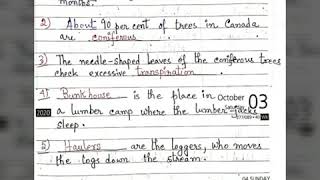 months.
2) About 90 per cent of trees in Canada
are coniferous.
3) The needle-shaped leaves of the coniferous trees
check excessive transpiration.
4) Bunk house is the place in
October 03
a lumber camp where the lumber jacks
2020
sleep.
5) Haulers are the loggers, who moves
the logs down the stream.
04 SUNDAY